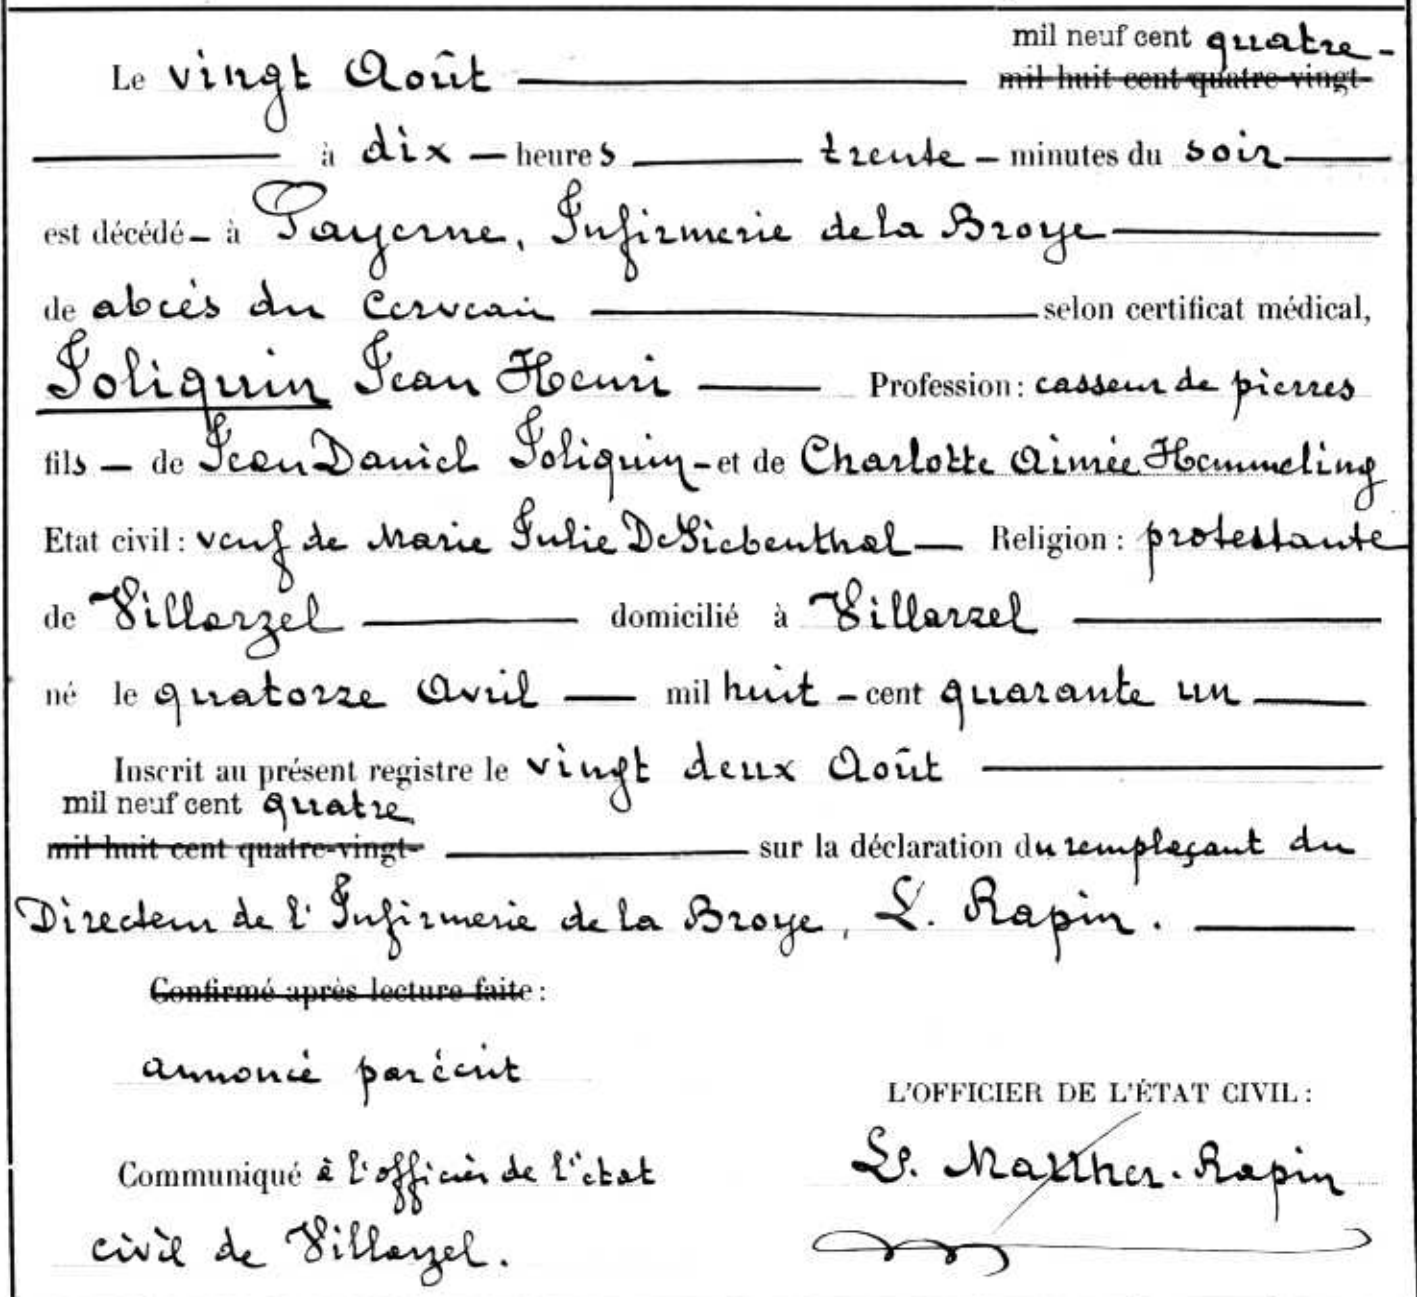 mil neuf cent quatre-
Le vingt Août mil huit cent quatre-vingt-
à dix - heures trente - minutes du soir
est décédé - à Payerne, Infirmerie de la Broye
de abcès du cerveau selon certificat médical,
Joliquin Jean Henri Profession : casseur de pierres
fils - de Jean Daniel Joliquin - et de Charlotte Aimée Hemmeling
Etat civil : veuf de Marie Julie DeSiebenthal - Religion : protestante
de Villarzel domicilié à Villarzel
né le quatorze Avril mil huit - cent quarante un
Inscrit au présent registre le vingt deux Août
mil neuf cent quatre
mil huit cent quatre-vingt- sur la déclaration du remplaçant du
Directeur de l'Infirmerie de la Broye, L. Rapin.
Confirmé après lecture faite :
annoncé par écrit
L'OFFICIER DE L'ÉTAT CIVIL :
Communiqué à l'officier de l'état Rapin
civil de Villarzel.